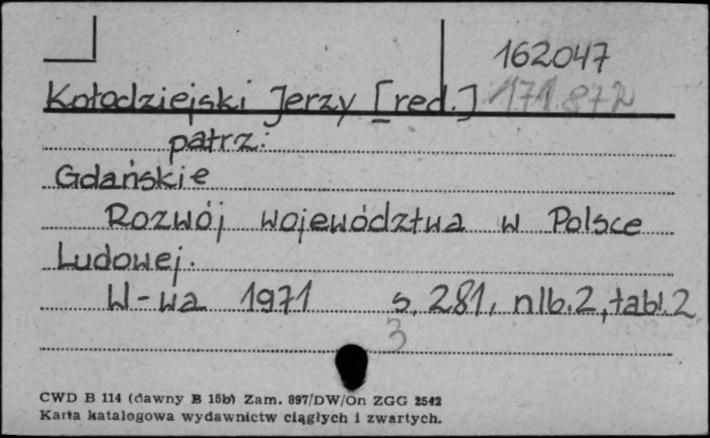 162047
Kołodziejski Jerzy [red.] 171.872
patrz:
Gdańskie
Rozwój województwa w Polsce
Ludowej.
W-wa 1971 s. 281, nlb. 2, tabl. 2
3
CWD B 114 (dawny B 15b) Zam. 897/DW/On ZGG 2542
Karta katalogowa wydawnictw ciągłych i zwartych.